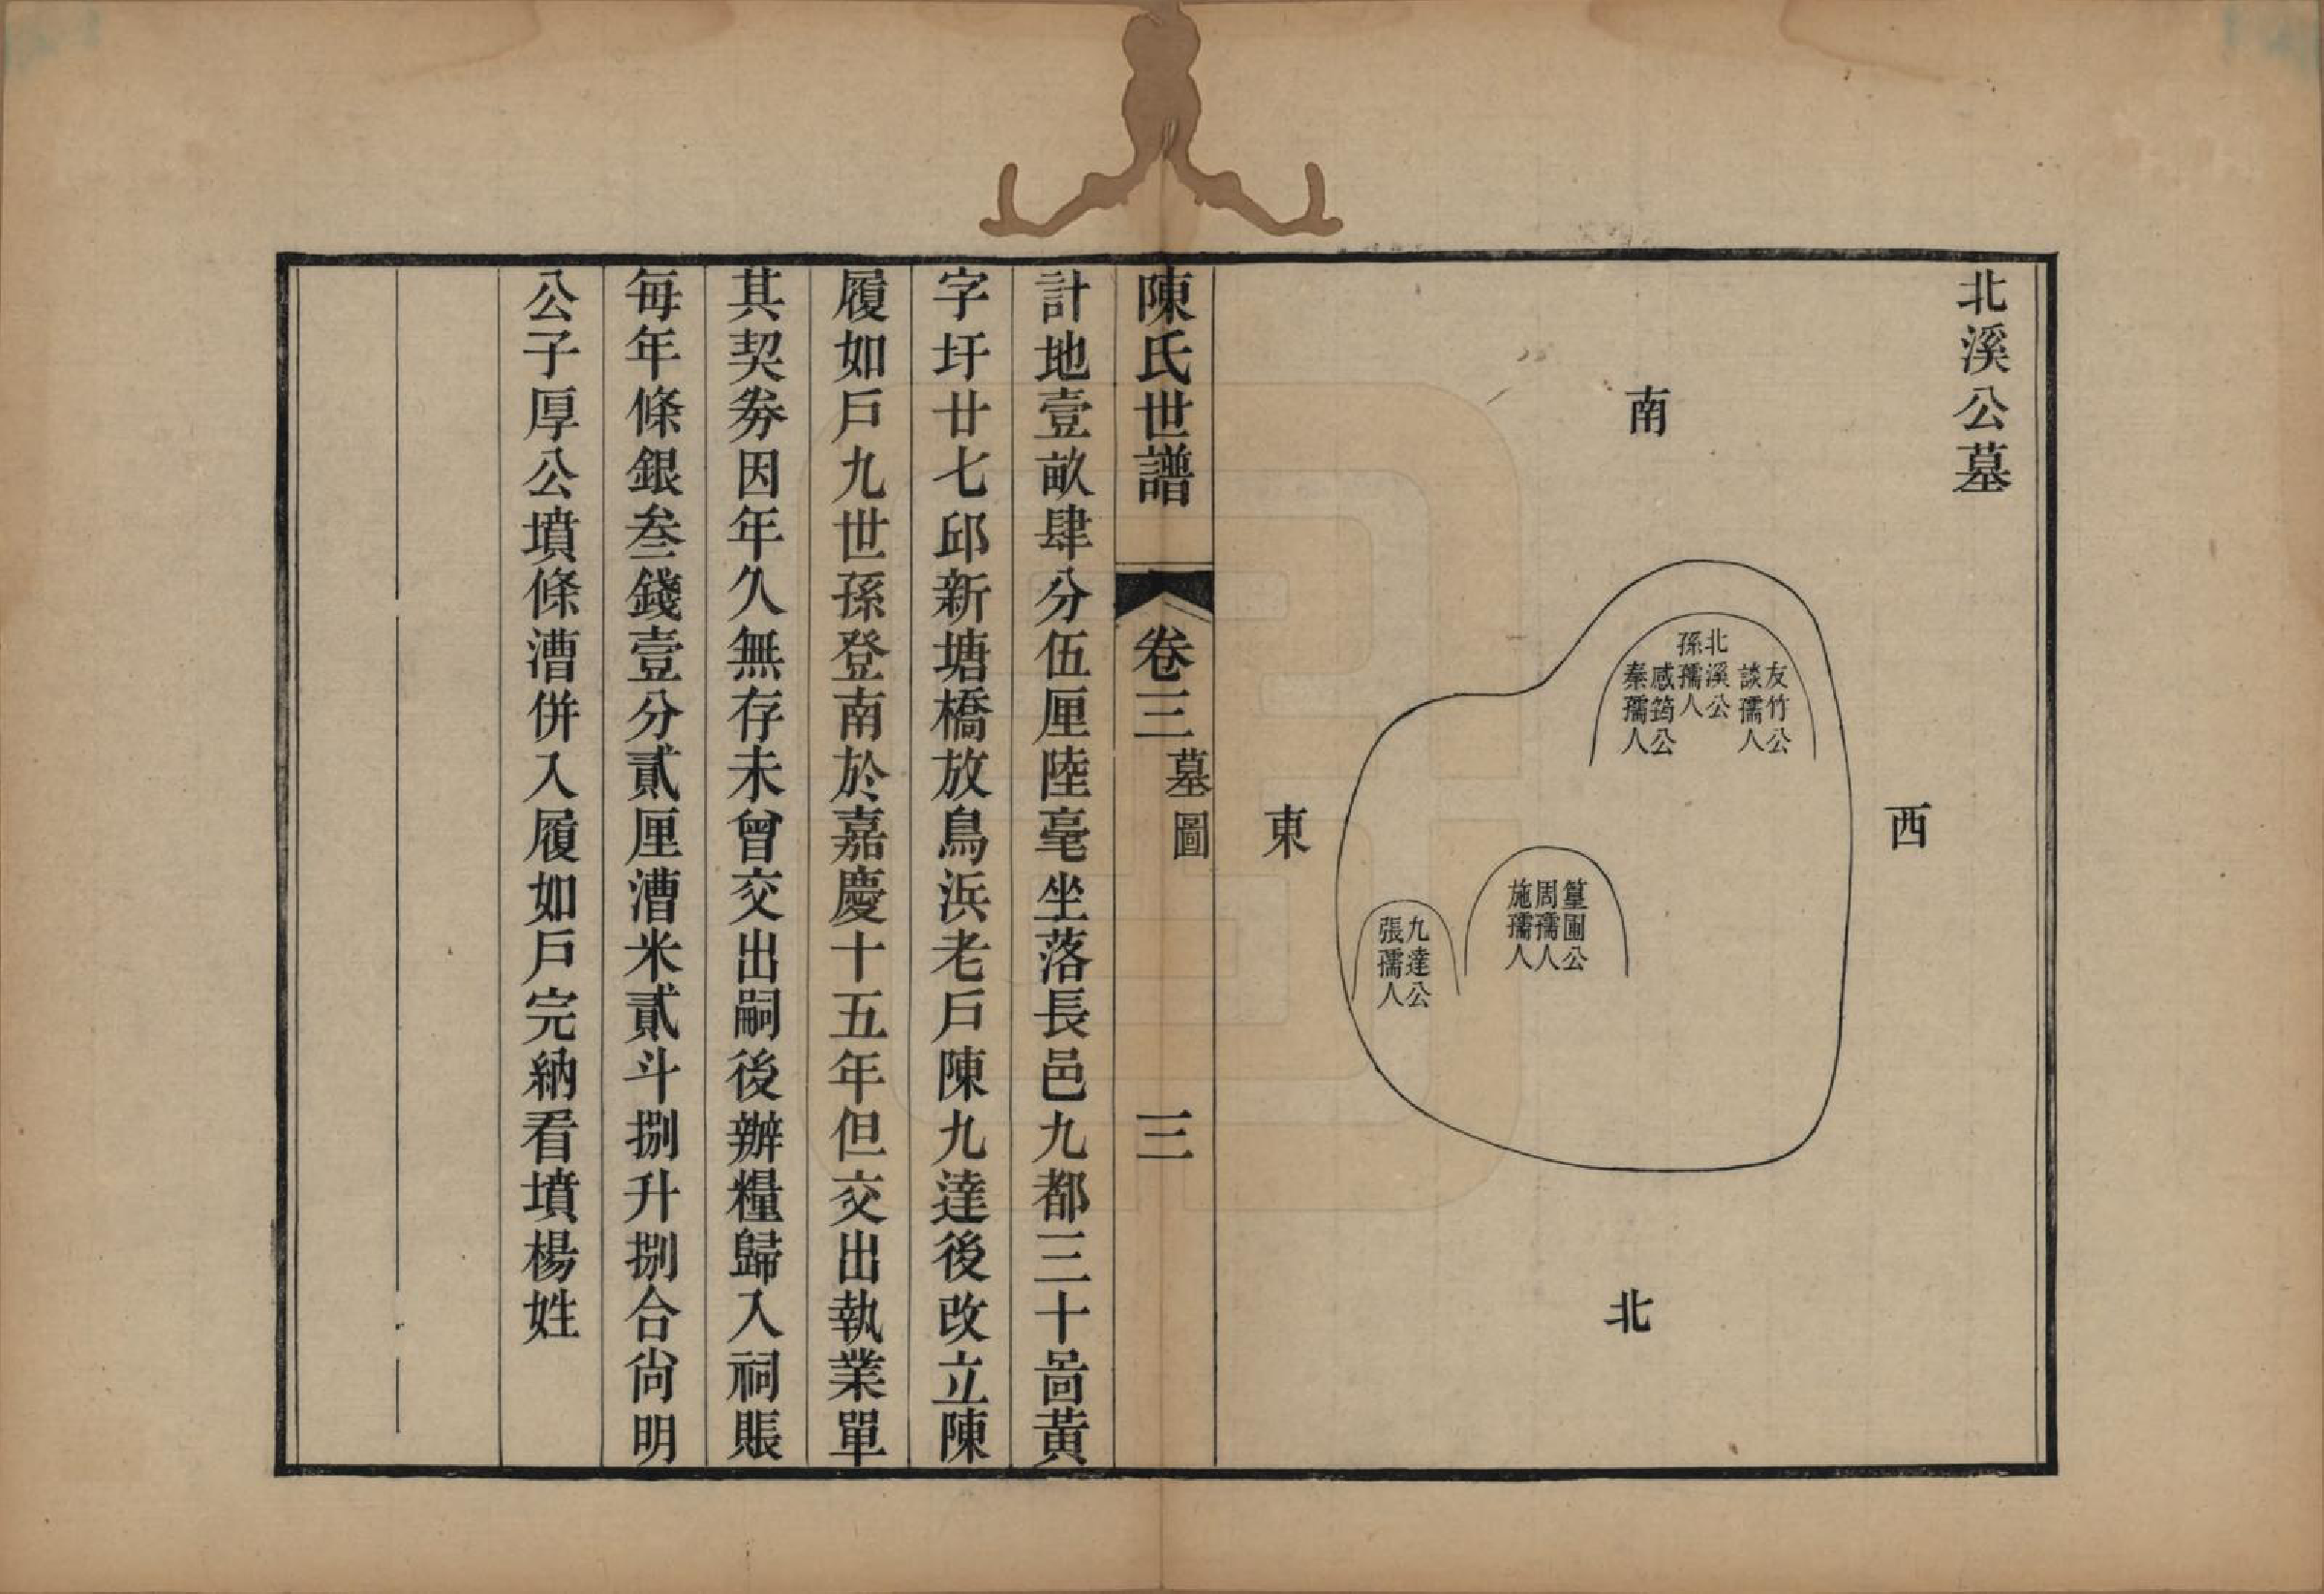 北溪公墓
南
西
東
北
友竹公
談孺人
北溪公
孫孺人
感筠公
秦孺人
篁圃公
周孺人
施孺人
九達公
張孺人
陳氏世譜 卷三 墓圖 三
計地壹畝肆分伍厘陸毫坐落長邑九都三十啚黃
字圩廿七邱新塘橋放鳥浜老戶陳九達後改立陳
履如戶九世孫登南於嘉慶十五年但交出執業單
其契券因年久無存未曾交出嗣後辦糧歸入祠賬
每年條銀叁錢壹分貳厘漕米貳斗捌升捌合尙明
公子厚公墳條漕併入履如戶完納看墳楊姓